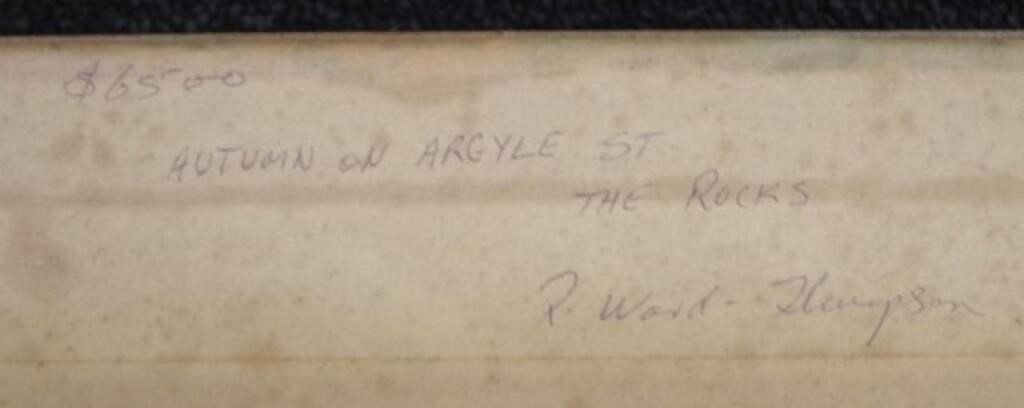 $6500
AUTUMN ON ARGYLE ST
THE ROCKS
P. Ward-Thompson